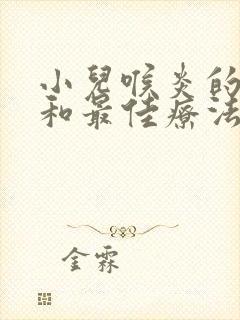 小兒喉炎的
和最佳療法
金霖